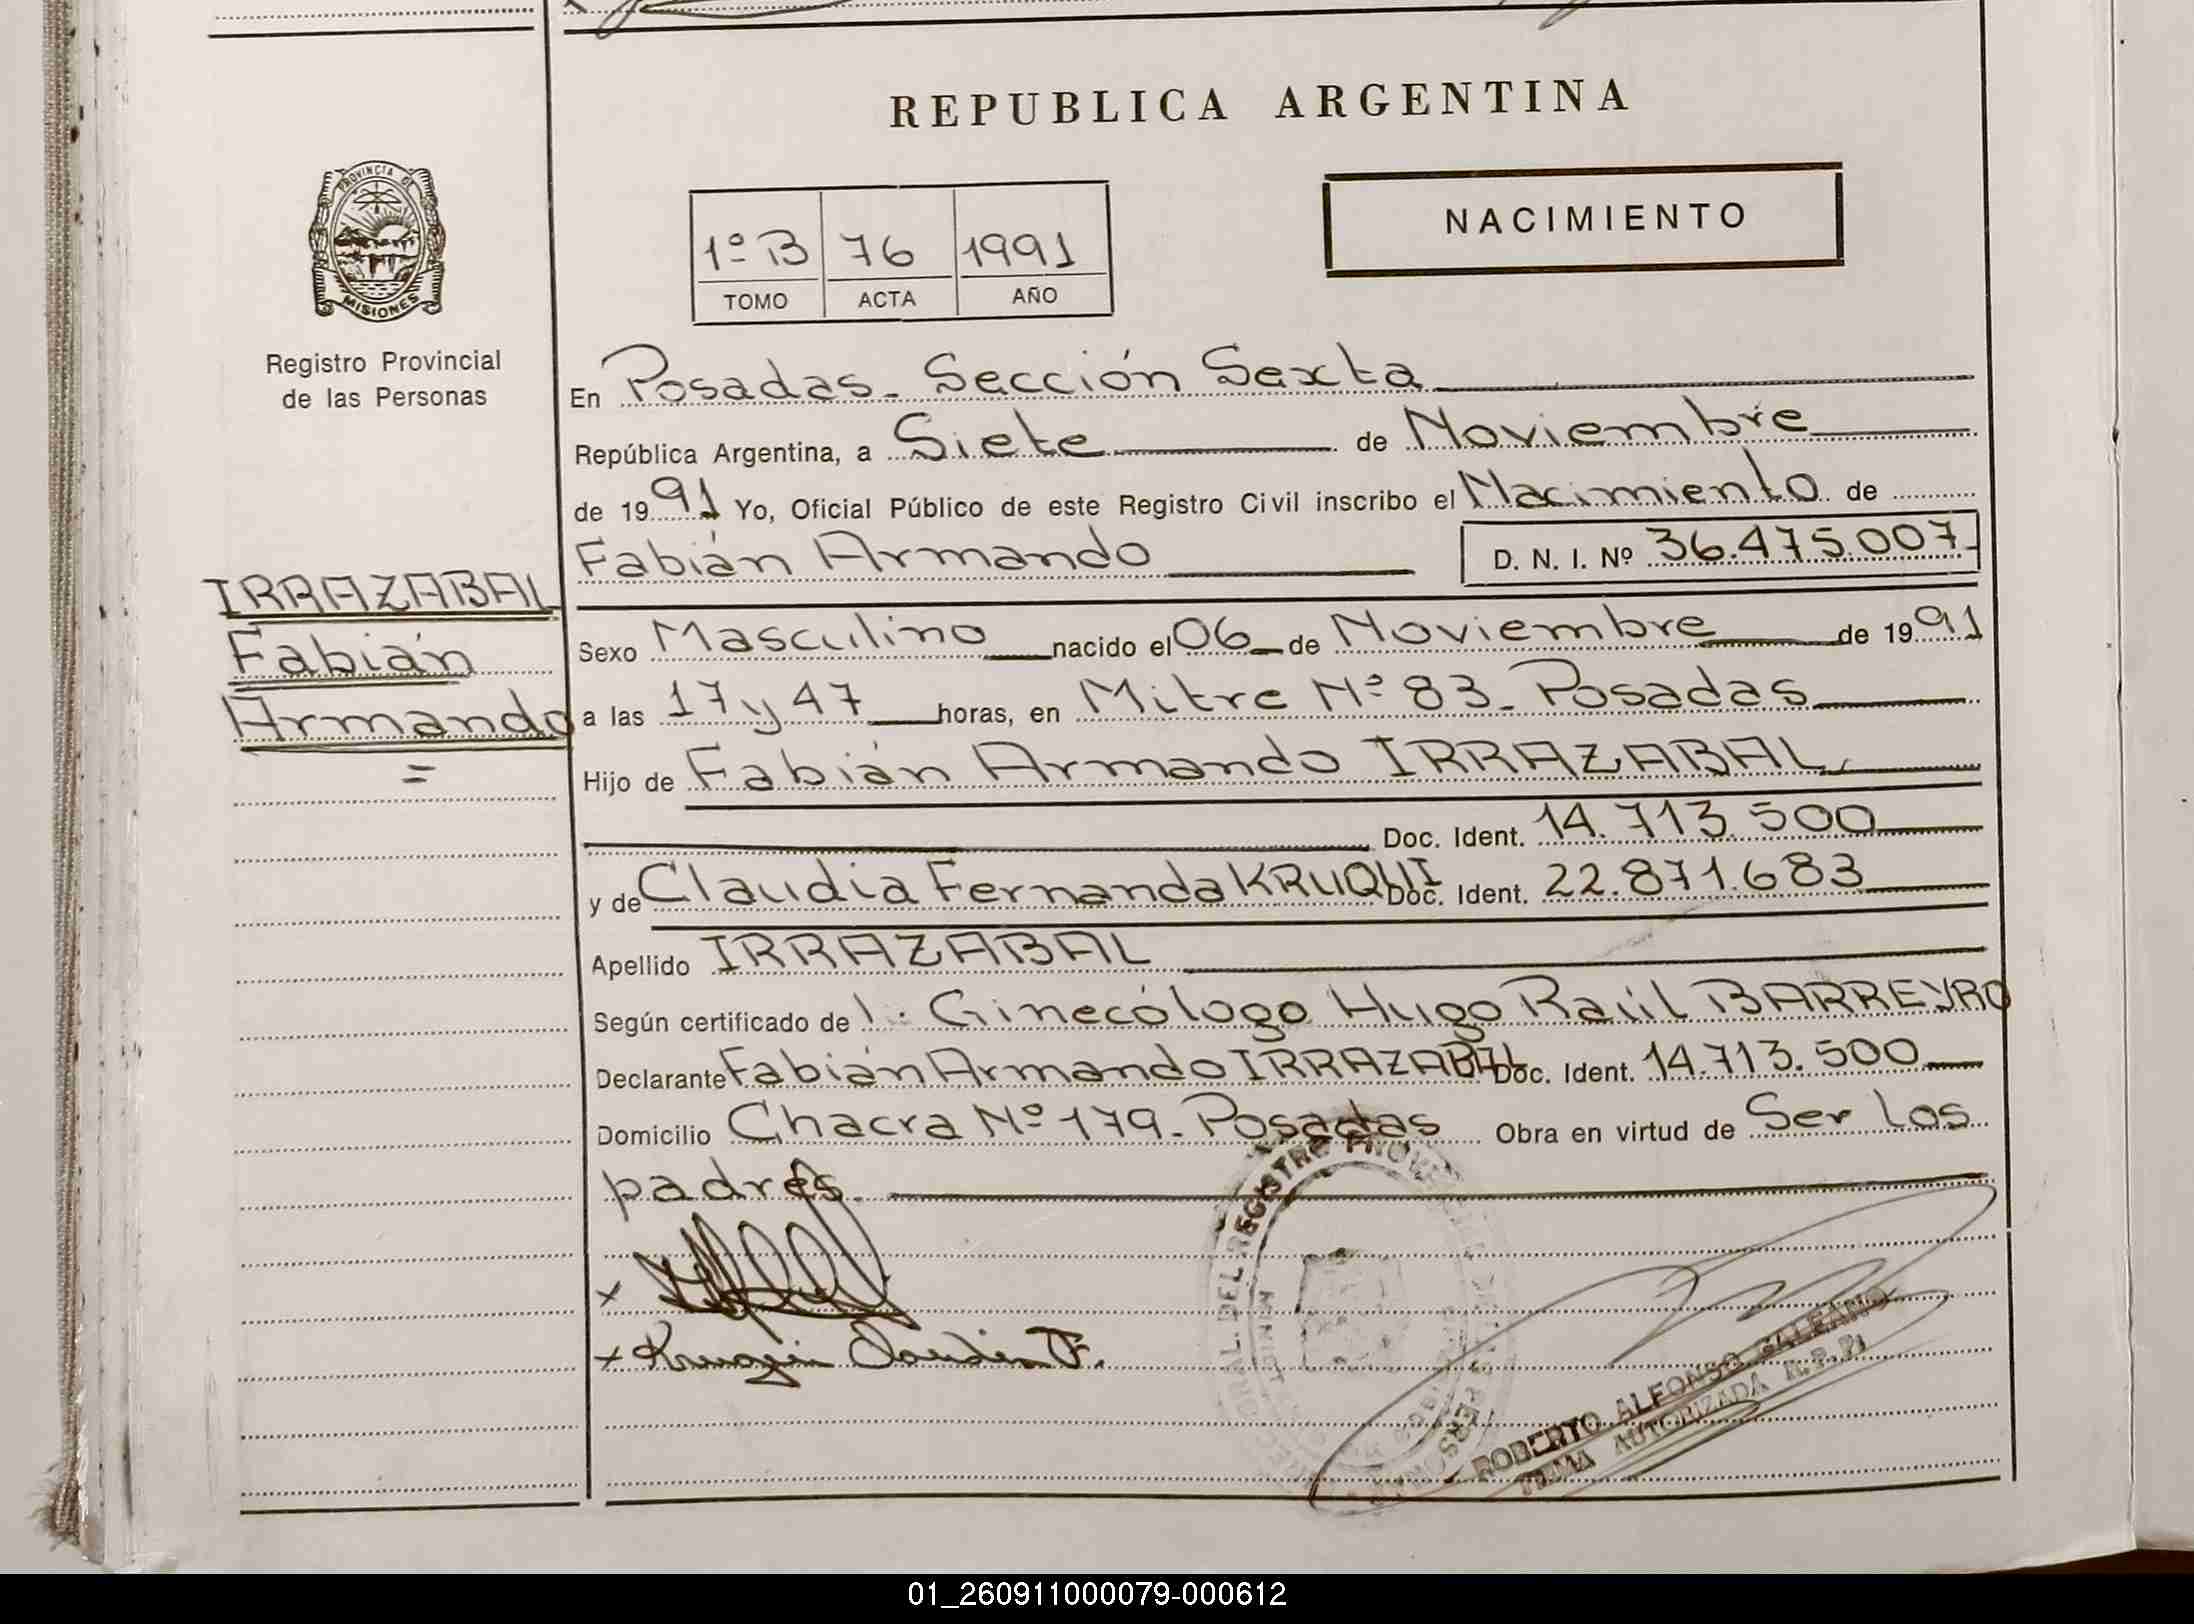 REPUBLICA ARGENTINA
PROVINCIA DE
MISIONES
Registro Provincial
de las Personas
1º B 76 1991
TOMO ACTA AÑO
NACIMIENTO
En Posadas - Sección Sexta
República Argentina, a Siete de Noviembre
de 1991 Yo, Oficial Público de este Registro Civil inscribo el Nacimiento de
Fabián Armando D. N. I. Nº 36.475.007
IRRAZABAL
Fabián
Armando
=
Sexo Masculino nacido el 06 de Noviembre de 1991
a las 17 y 47 horas, en Mitre Nº 83 - Posadas
Hijo de Fabián Armando IRRAZABAL
Doc. Ident. 14.713.500
y de Claudia Fernanda KRUQUI Doc. Ident. 22.871.683
Apellido IRRAZABAL
Según certificado de l. Ginecólogo Hugo Raúl BARREYRO
Declarante Fabián Armando IRRAZABAL Doc. Ident. 14.713.500
Domicilio Chacra Nº 179 - Posadas Obra en virtud de Ser los
padres.
x
x Kruqui Claudia F.
DEL REGISTRO
ROBERTO ALFONSO GALEANO
FIRMA AUTORIZADA R.P.P.
01_260911000079-000612